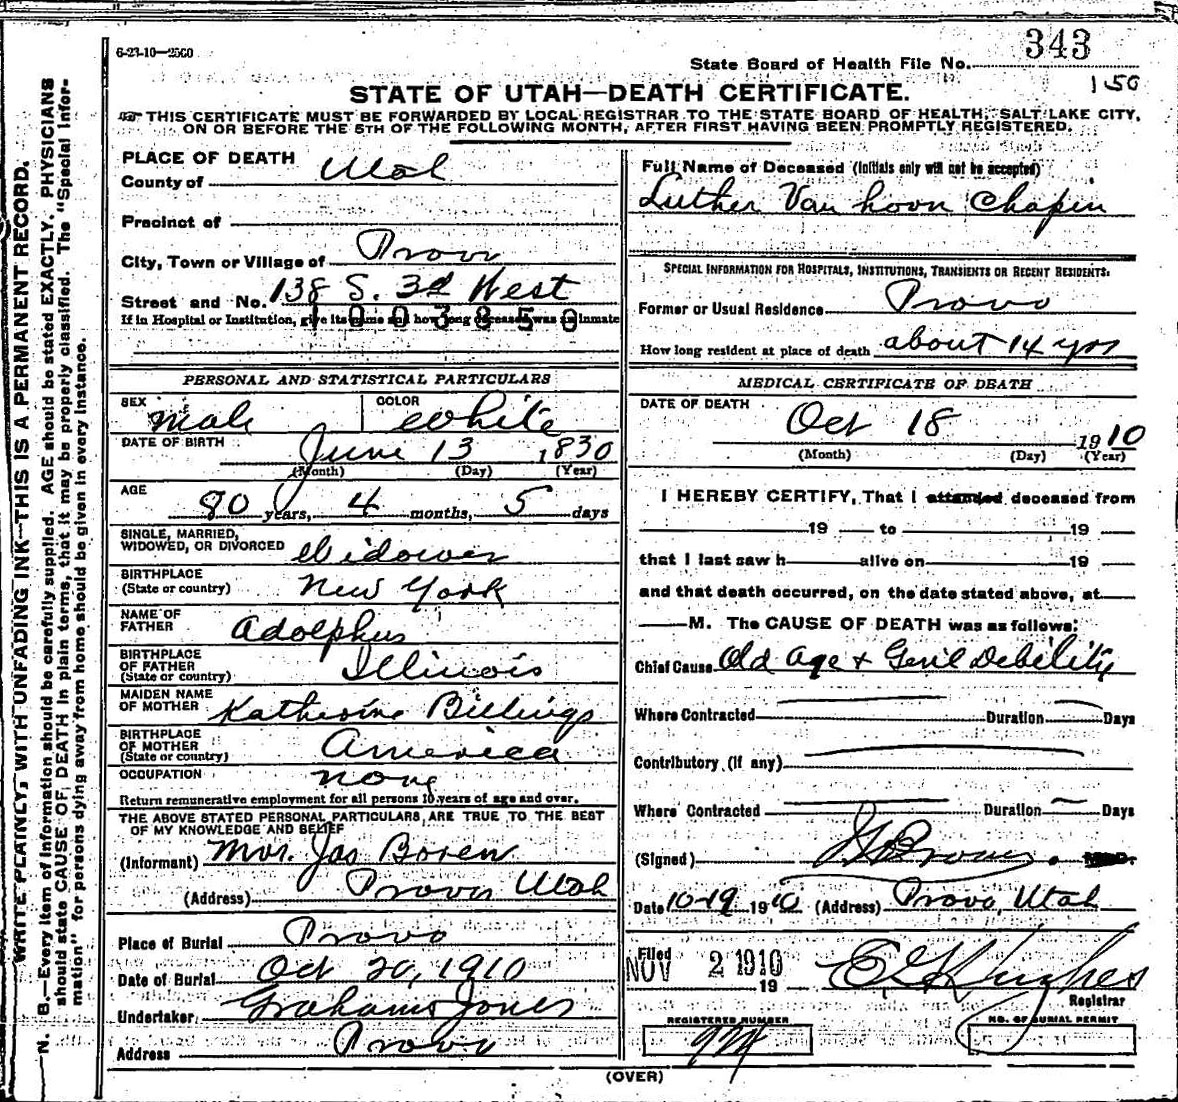 6-23-10—2500
State Board of Health File No. 343
150
STATE OF UTAH—DEATH CERTIFICATE.
THIS CERTIFICATE MUST BE FORWARDED BY LOCAL REGISTRAR TO THE STATE BOARD OF HEALTH, SALT LAKE CITY,
ON OR BEFORE THE 5TH OF THE FOLLOWING MONTH, AFTER FIRST HAVING BEEN PROMPTLY REGISTERED.
WRITE PLAINLY, WITH UNFADING INK—THIS IS A PERMANENT RECORD.
N. B.—Every item of information should be carefully supplied. AGE should be stated EXACTLY. PHYSICIANS
should state CAUSE OF DEATH in plain terms, that it may be properly classified. The "Special Infor-
mation" for persons dying away from home should be given in every instance.
PLACE OF DEATH
County of Utah
Precinct of
City, Town or Village of Provo
Street and No. 138 S. 3d West
If in Hospital or Institution, give its name and how long deceased was an inmate
1003850
PERSONAL AND STATISTICAL PARTICULARS
SEX Male COLOR White
DATE OF BIRTH June 13 1830
(Month) (Day) (Year)
AGE 80 years, 4 months, 5 days
SINGLE, MARRIED,
WIDOWED, OR DIVORCED Widower
BIRTHPLACE
(State or country) New York
NAME OF
FATHER Adolphus
BIRTHPLACE
OF FATHER
(State or country) Illinois
MAIDEN NAME
OF MOTHER Katherine Billings
BIRTHPLACE
OF MOTHER
(State or country) America
OCCUPATION None
Return remunerative employment for all persons 10 years of age and over.
THE ABOVE STATED PERSONAL PARTICULARS, ARE TRUE TO THE BEST
OF MY KNOWLEDGE AND BELIEF
(Informant) Mrs. Jas Boren
(Address) Provo Utah
Place of Burial Provo
Date of Burial Oct 20, 1910
Undertaker Grahams Jones
Address Provo
Full Name of Deceased (Initials only will not be accepted)
Luther Van hoon Chapin
SPECIAL INFORMATION FOR HOSPITALS, INSTITUTIONS, TRANSIENTS OR RECENT RESIDENTS.
Former or Usual Residence Provo
How long resident at place of death about 14 yrs
MEDICAL CERTIFICATE OF DEATH
DATE OF DEATH
Oct 18 1910
(Month) (Day) (Year)
I HEREBY CERTIFY, That I attended deceased from
19 to 19
that I last saw h alive on 19
and that death occurred, on the date stated above, at
M. The CAUSE OF DEATH was as follows:
Chief Cause Old Age + Genl Debility
Where Contracted Duration Days
Contributory (if any)
Where Contracted Duration Days
(Signed)
Date 10-19 1910 (Address) Provo, Utah
Filed
NOV 2 1910
19
E G Hughes
Registrar
REGISTERED NUMBER
NO. OF BURIAL PERMIT
(OVER)